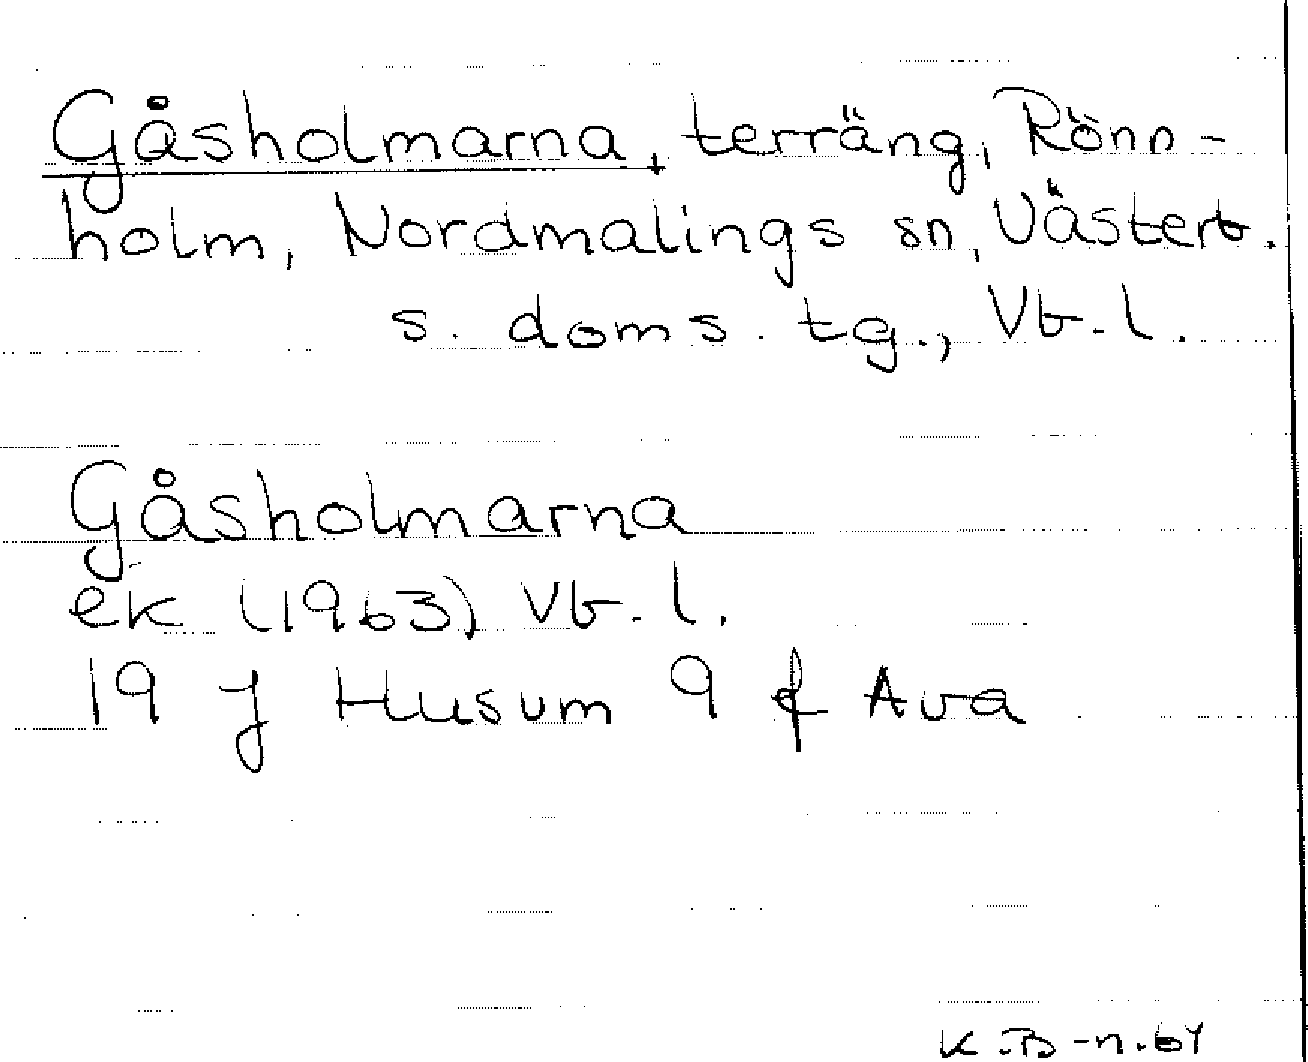 Gåsholmarna, terräng, Rönn-
holm, Nordmalings sn, Västerb.
s. doms. tg., Vb. l.
Gåsholmarna
ek (1963) Vb. l.
19 J Husum 9 f Ava
K.B-n.64